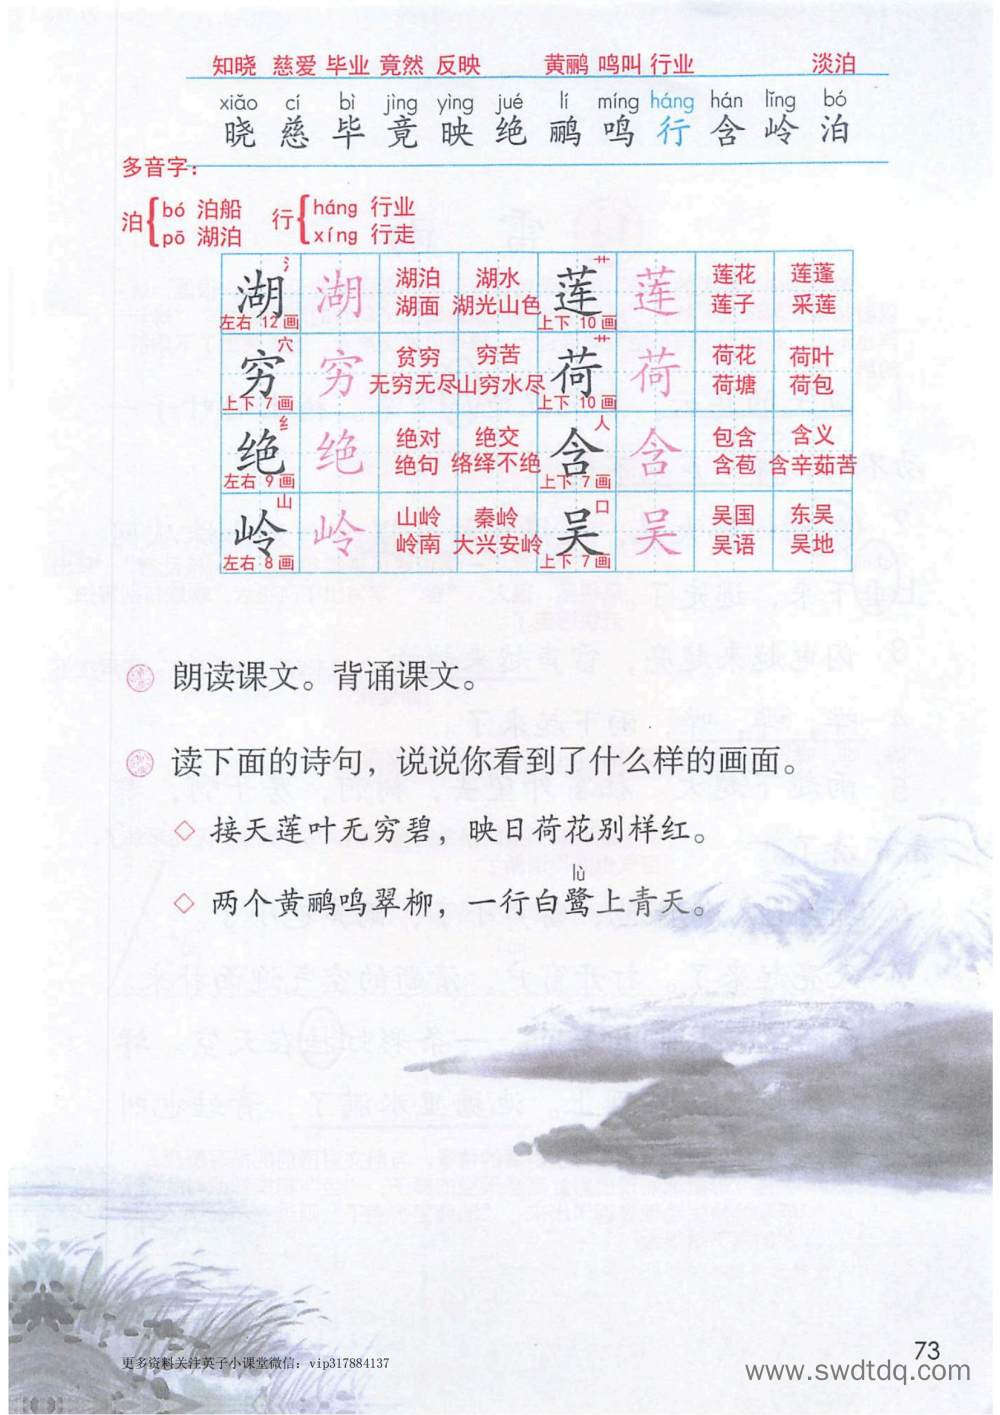 知晓 慈爱 毕业 竟然 反映 黄鹂 鸣叫 行业 淡泊
xiǎo cí bì jìng yìng jué lí míng háng hán lǐng bó
晓 慈 毕 竟 映 绝 鹂 鸣 行 含 岭 泊
多音字:
泊 bó 泊船 行 háng 行业
pō 湖泊 xíng 行走
氵 艹
湖 湖 湖泊 湖水 莲 莲 莲花 莲蓬
湖面 湖光山色 莲子 采莲
左右 12画 上下 10画
穴 艹
穷 穷 贫穷 穷苦 荷 荷 荷花 荷叶
无穷无尽 山穷水尽 荷塘 荷包
上下 7画 上下 10画
纟 人
绝 绝 绝对 绝交 含 含 包含 含义
绝句 络绎不绝 含苞 含辛茹苦
左右 9画 上下 7画
山 口
岭 岭 山岭 秦岭 吴 吴 吴国 东吴
岭南 大兴安岭 吴语 吴地
左右 8画 上下 7画
朗读课文。背诵课文。
读下面的诗句，说说你看到了什么样的画面。
◇ 接天莲叶无穷碧，映日荷花别样红。
lù
◇ 两个黄鹂鸣翠柳，一行白鹭上青天。
73
更多资料关注英子小课堂微信：vip317884137
www.swdtdq.com